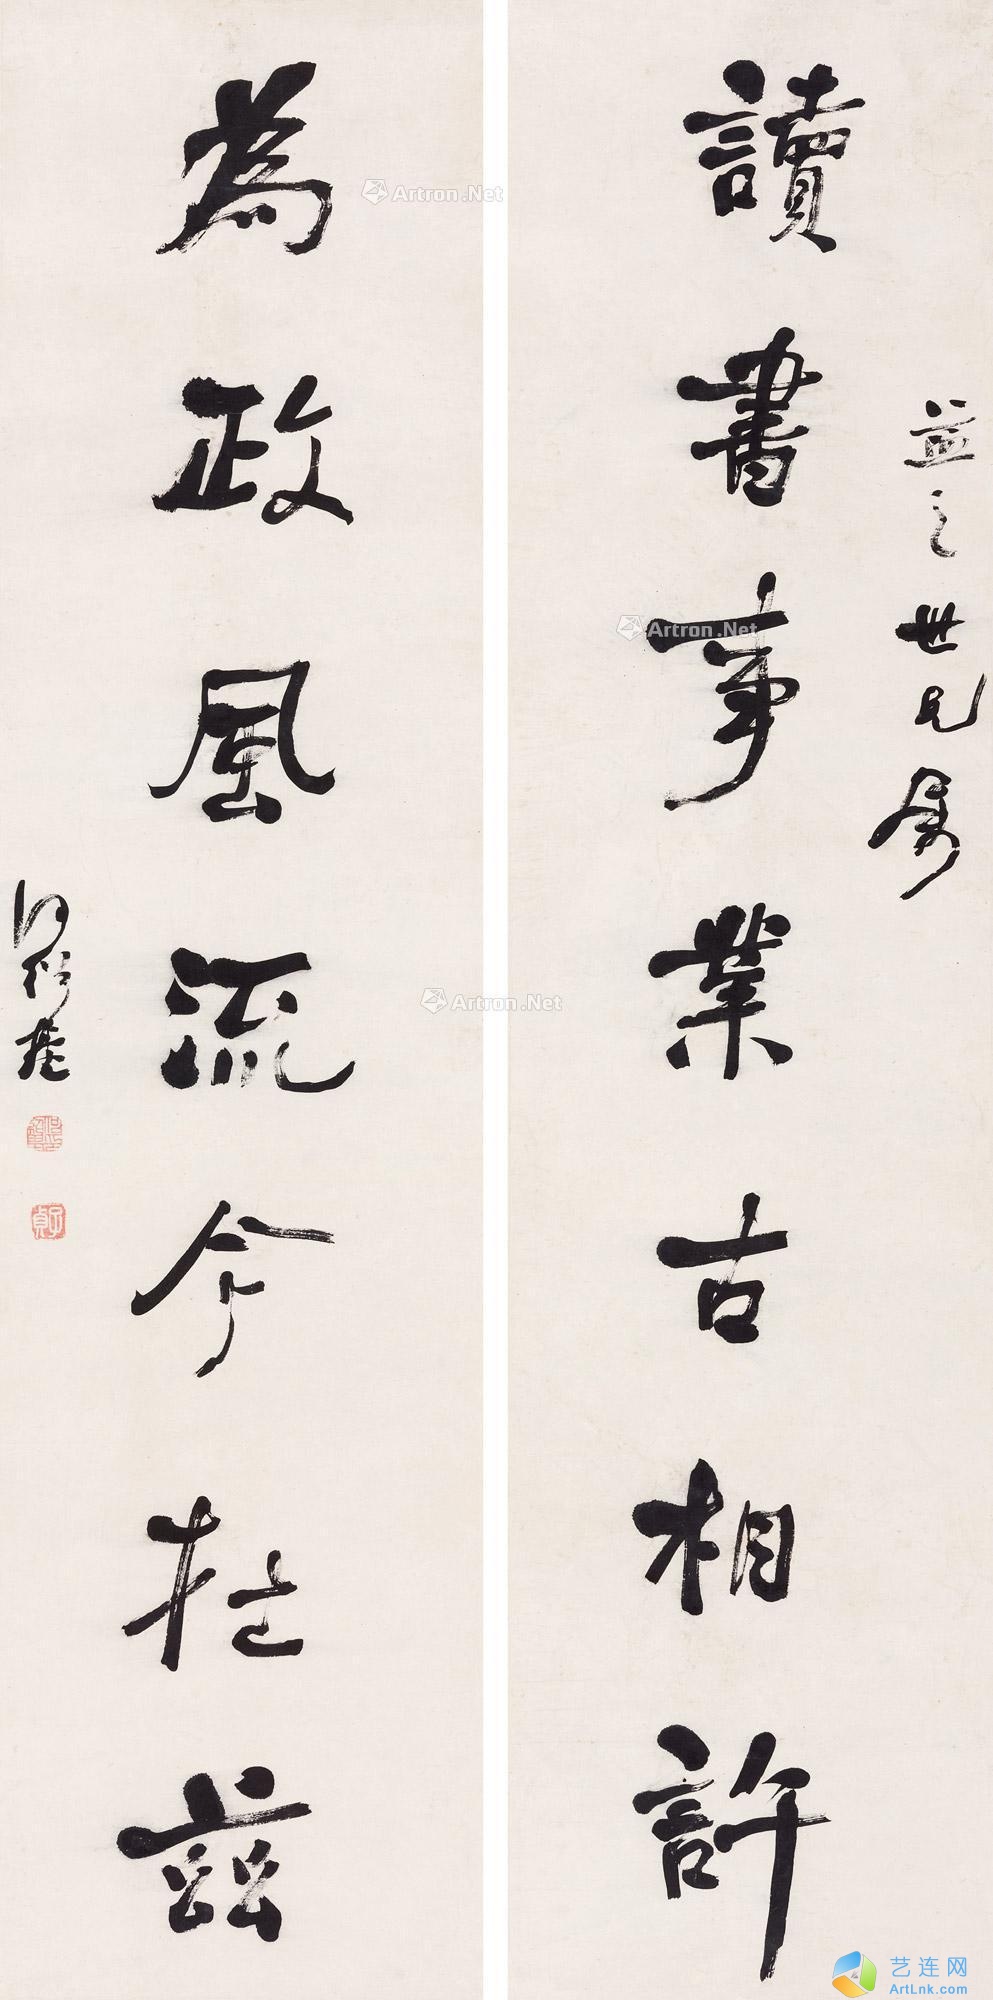 益之世兄屬
讀書事業古相許
為政風流今在茲
何紹基
子貞
Artron.Net
Artron.Net
Artron.Net
艺连网
ArtLnk.com